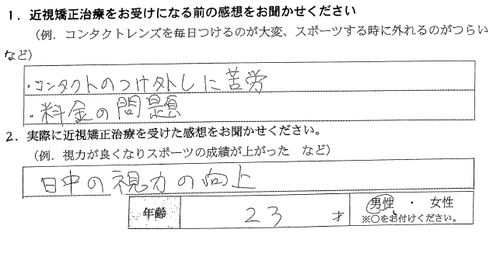 1．近視矯正治療をお受けになる前の感想をお聞かせください
（例．コンタクトレンズを毎日つけるのが大変、スポーツする時に外れるのがつらい
など）
・コンタクトのつけ外しに苦労
・料金の問題
2．実際に近視矯正治療を受けた感想をお聞かせください。
（例．視力が良くなりスポーツの成績が上がった　など）
日中の視力の向上
年齢　23　才　男性　・　女性
※〇をお付けください。